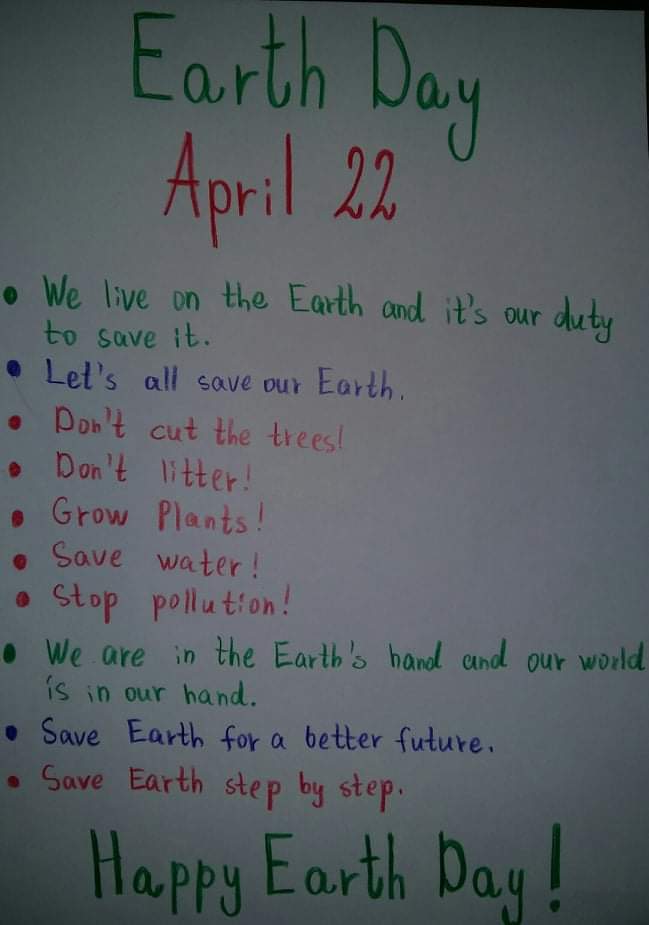 Earth Day
April 22
• We live on the Earth and it's our duty
to save it.
• Let's all save our Earth.
• Don't cut the trees!
• Don't litter!
• Grow Plants!
• Save water!
• Stop pollution!
• We are in the Earth's hand and our world
is in our hand.
• Save Earth for a better future.
• Save Earth step by step.
Happy Earth Day!